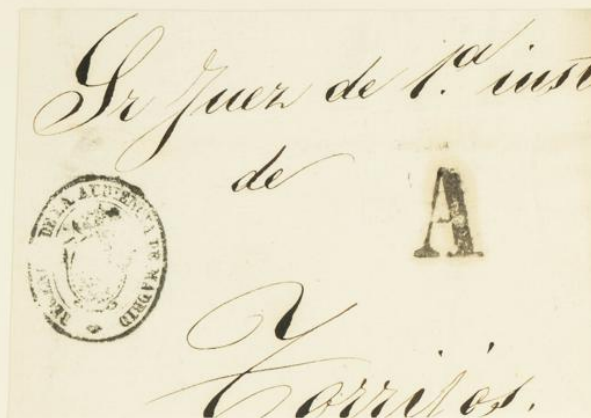 Sr Juez de 1.ª inst
de
A
DE LA AUDIENCIA DE MADRID
Torrijos.